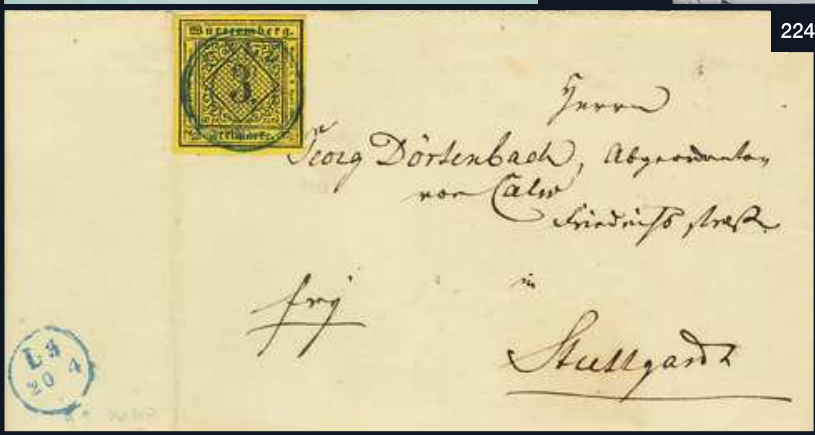 224
Württemberg.
3.
Freimarke.
Herrn
Georg Dörtenbach, Abgeordneten
von Calw
Friedrichsstraße
frei
in
Stuttgardt
20 4